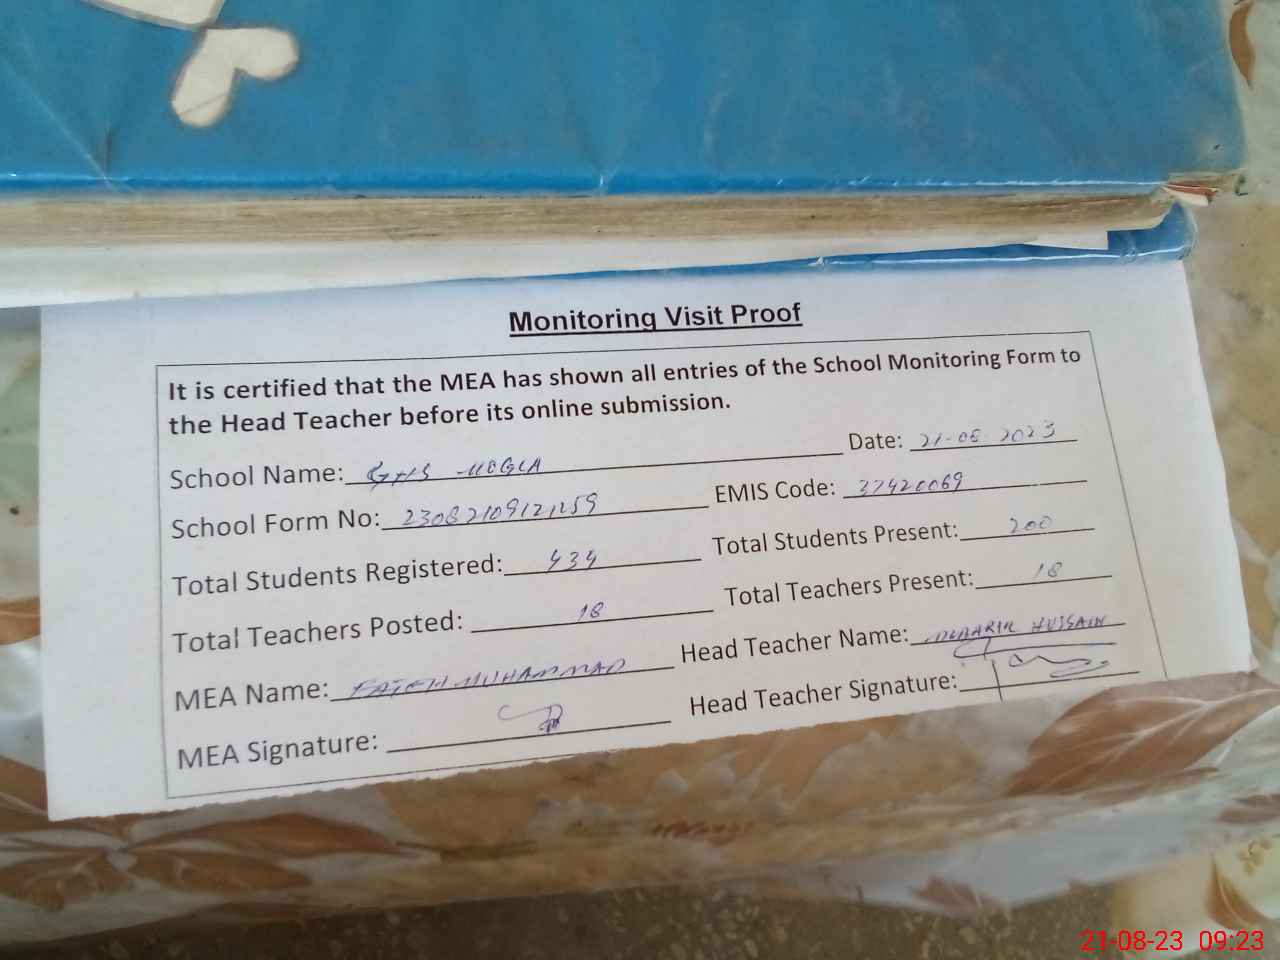 Monitoring Visit Proof
It is certified that the MEA has shown all entries of the School Monitoring Form to
the Head Teacher before its online submission.
School Name: GHS MOGLA Date: 21-08-2023
School Form No: EMIS Code: 37420069
Total Students Registered: 434 Total Students Present: 200
Total Teachers Posted: 18 Total Teachers Present: 18
MEA Name: FATEH MUHAMMAD Head Teacher Name: HUSSAIN
MEA Signature: Head Teacher Signature:
21-08-23 09:23